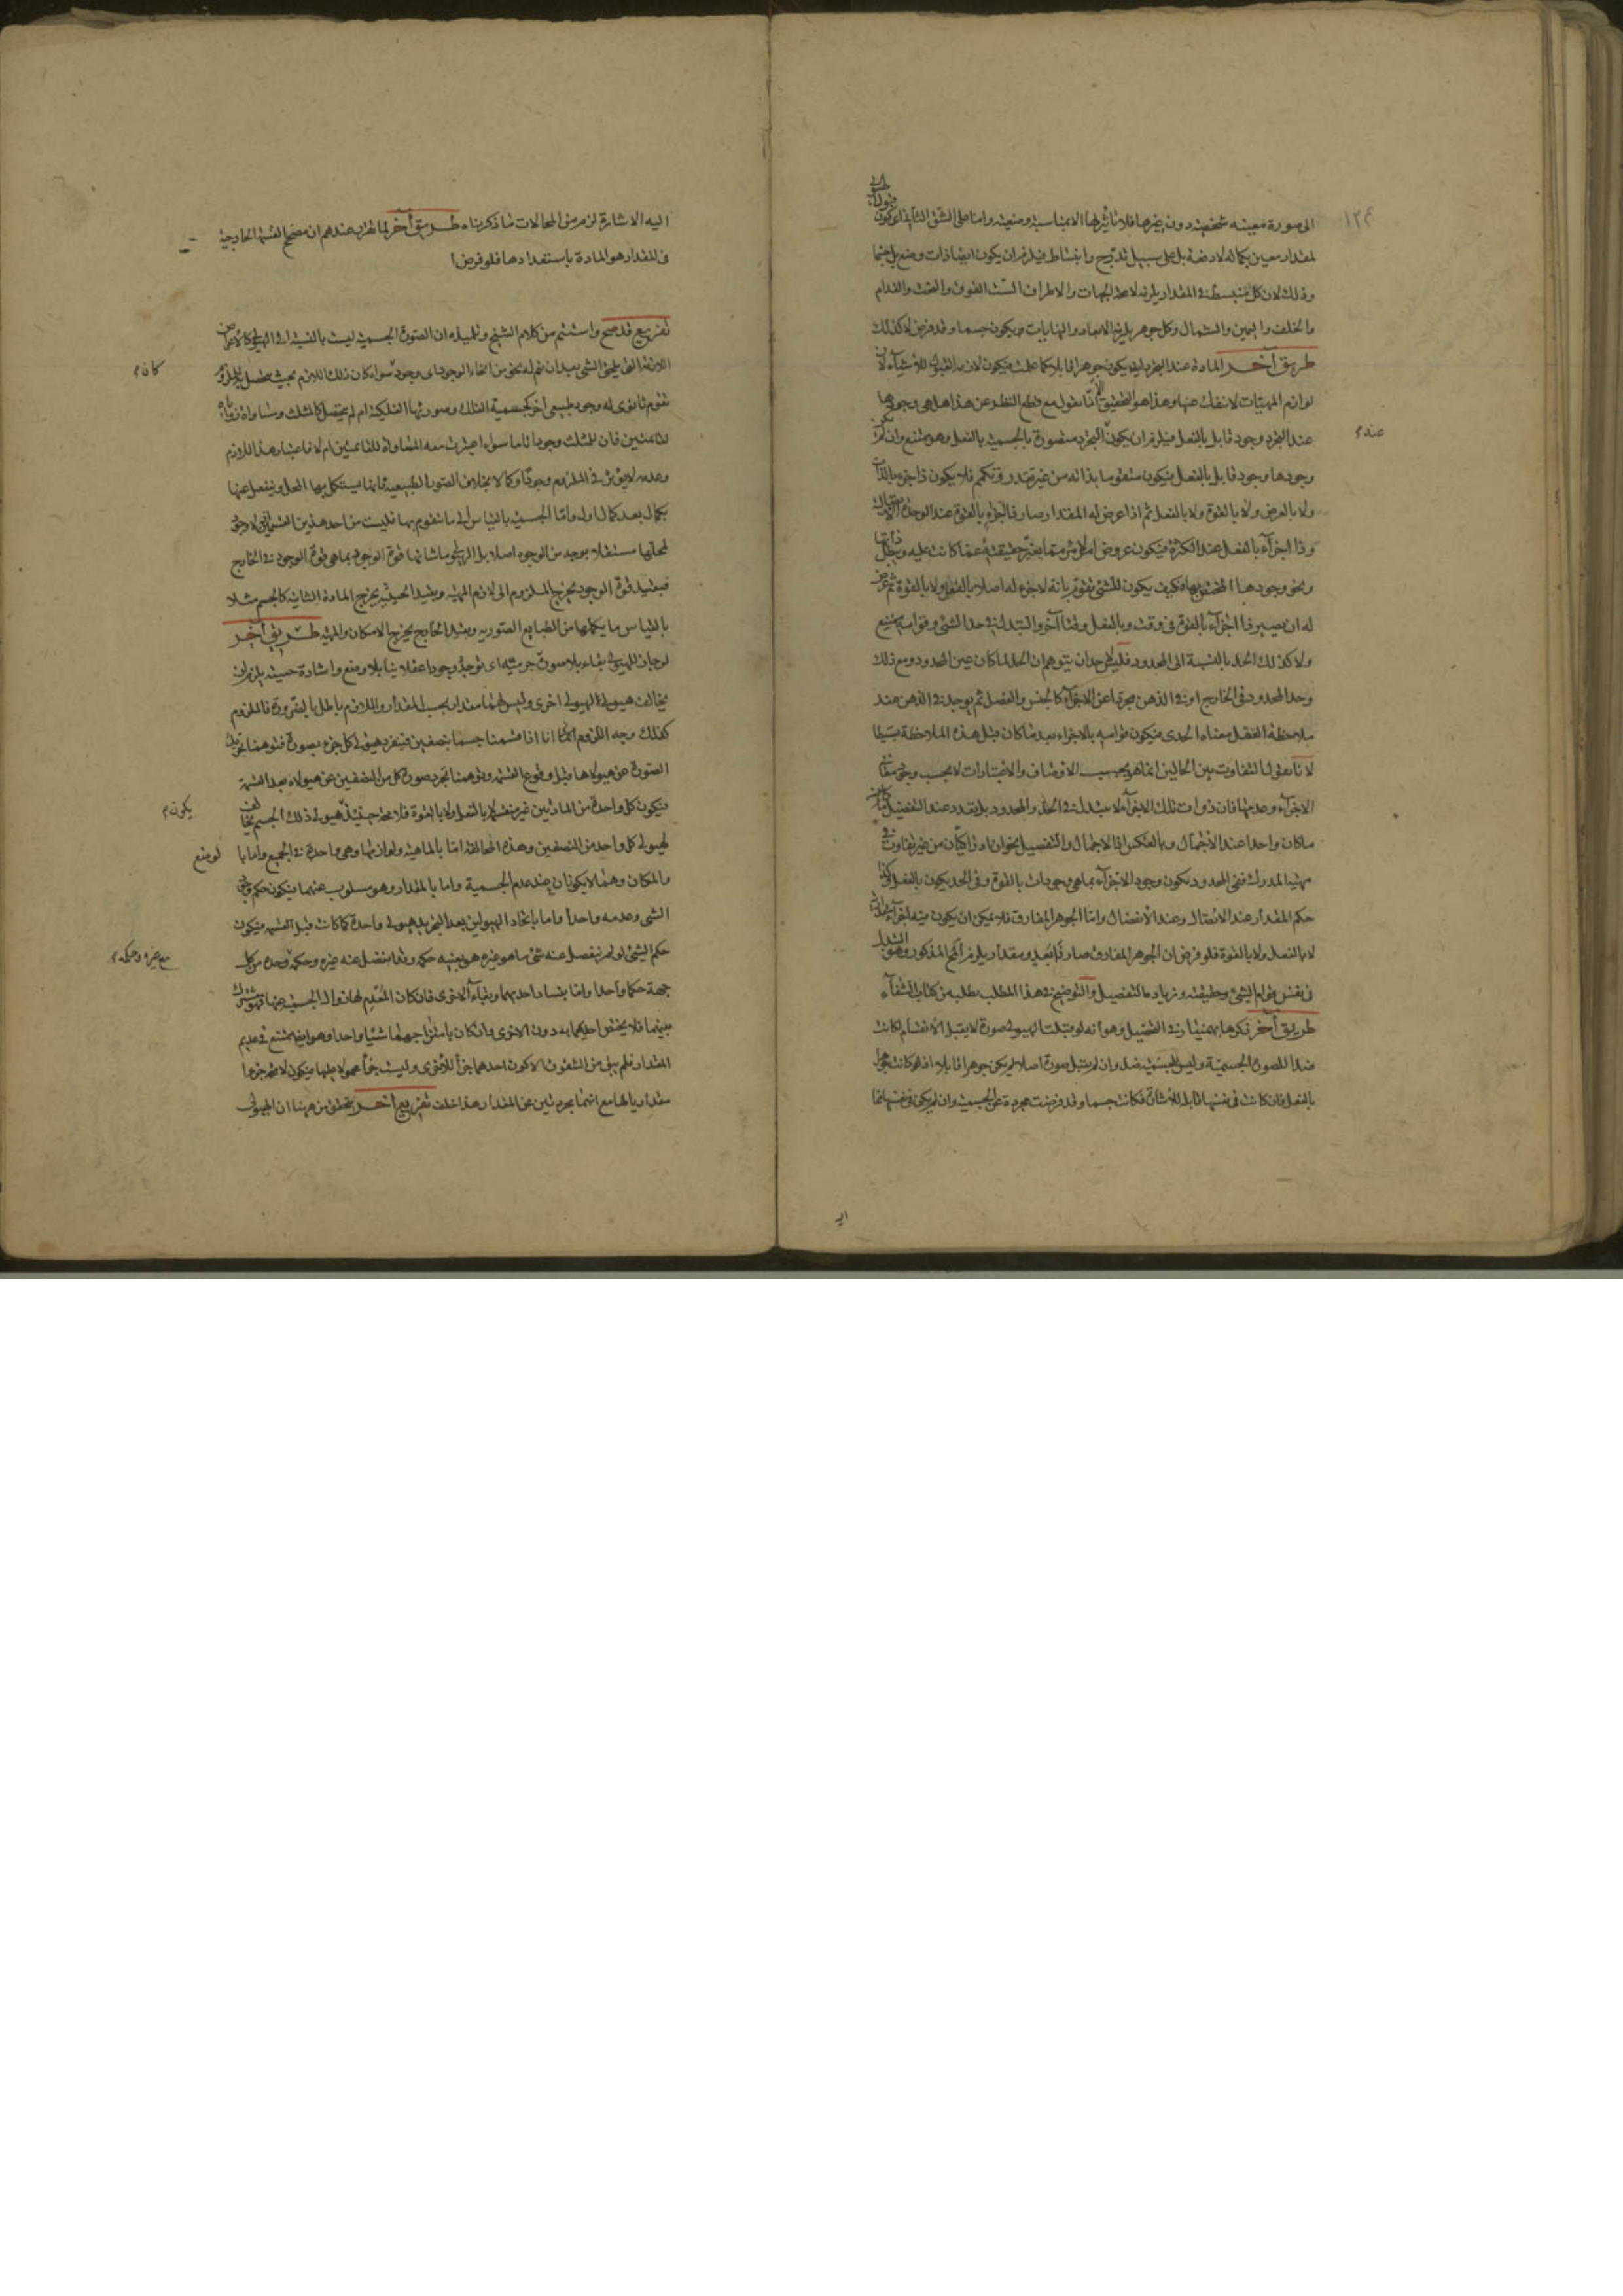 ١٢٤
الى صورة معينه شخصيته دون غيرها فلا تأثير لها الا بمناسبة وضعيته واما على الشق الثانى اعنى كون
لمقدار معين بكماله لا دفعة بل على سبيل تدرج وانبساط فيلزم ان يكون ايضا ذات وضع بل جسما
وذلك لان كل منبسط فى المقدار يلزمه لا محة الجهات والاطراف الست الفوق والتحت والقدام
والخلف واليمين والشمال وكل جوهر يلزمه الابعاد والنهايات ويكون جسما وقد فرض لا كذلك
طريق آخر المادة عند التجرد ليت يكون جوهرا قابلا كما علمت فيكون لازمه القبول للأشياء لان
لوازم المهيات لا تنفك عنها وهذا هو التحقيق انا نقول مع قطع النظر عن هذا هل هى وجودها
عند التجرد وجود قابل بالفعل فيلزم ان يكون التجرد متصورة بالجسمية بالفعل وهو ممتنع وان لم يكن
عنده
وجودها وجود قابل بالفعل فيكون متقوما بذاته من غير تقدر وتكمم فلا يكون ذا جزء بالذات
ولا بالعرض ولا بالقوة ولا بالفعل ثم اذا عرض له المقدار صار ذا اجزاء بالقوة عند الوحدة الاتصالية
وذا اجزاء بالفعل عند الكثرة فيكون عروض امر لشئ مما يغير حقيقته عما كانت عليه ويبطل ذاتها
ونحو وجودها المختص بها وكيف يكون للشئ تقوم بانه لا جزء له اصلا بالفعل ولا بالقوة ثم عرض
له ان يصير ذا اجزاء بالقوة فى وقت وبالفعل وقتا آخر والتبدل فى حد الشئ وقوامه ممتنع
ولا كذلك الحد بالنسبة الى المحدود فليس لاحد ان يتوهم ان الحد لما كان عين المحدود ومع ذلك
وجد المحدود فى الخارج او فى الذهن مجردا عن الاجزاء كالجنس والفصل ثم يوجد فى الذهن عند
ملاحظة العقل معناه الحدى فيكون قوامه بالاجزاء بعد ما كان قبل هذه الملاحظة بسيطا
لانا نقول التفاوت بين الحالين انما هو بحسب الاوصاف والاعتبارات لا بحسب وجود مقامات
الاجزاء وعدمها فان ذوات تلك الاجزاء لا يتبدل فى الحد والمحدود بل يتعدد عند التفصيل
ماكان واحدا عند الاجمال وبالعكس انما الاجمال والتفصيل نحوان ادراكيان من غير تفاوت فى
مهية المدرك ففى المحدود يكون وجود الاجزاء بما هى وجودات بالقوة وفى الحد يكون بالفعل كذا
حكم المقدار عند الاتصال وعند الانفصال واما الجوهر المفارق فلا يمكن ان يكون فيه اجزاء
لا بالفعل ولا بالقوة فلو فرض ان الجوهر المفارق صار ذا بعد ومقدار يلزم المح المذكور وهو التبدل
فى نفس قوام الشئ وحقيقته وزيادة التفصيل والتوضيح فى هذا المطلب يطلب من كتاب الشفآء
طريق آخر ذكرها بهمنيار فى التحصيل وهو انه لو قبلت الهيولى صورة لا يقبل الانقسام لكانت
ضدا للصورة الجسمية وليس للجسمية ضد وان لم يقبل صورة اصلا لم يكن جوهرا قابلا اذ لو كانت جوهرا
بالفعل فان كانت فى نفسها قابلة للاشارة فكانت جسما وقد فرضت مجردة عن الجسمية وان لم يكن فى نفسها قابلة
اليه
اليه الاشارة لزم من المحالات ما ذكرناه طريق آخر لما تقرر عندهم ان مصحح القسمة الخارجية
فى المقدار هو المادة باستعدادها فلو فرض ا
تفريع قد صح واستتم من كلام الشيخ وتلميذه ان الصورة الجسمية ليست بالنسبة الى الهيولى كالاعراض
اللازمة التى يلحق الشئ بعد ان تم له نحو من انحاء الوجود اى وجود سواء كان ذلك اللازم بحيث يحصل للملزوم
كان
تقوم ثانوى له وجود طبيعى آخر كجسمية الفلك وصورتها الفلكية ام لم يحصل كالمثلث ومساواة زواياه
لقائمتين فان للمثلث وجودا تاما سواء اعتبرت معه المساواة للقائمتين ام لا فاعتبار هذا اللازم
وعدمه لا يؤثر فى الملزوم وجودا وكمالا بخلاف الصور الطبيعية فانها يستكمل بها المحل ويتحصل عنها
بكمال بعد كمال اول واما الجسمية بالقياس الى ما يتقوم بها فليست من احد هذين القسمين اذ لا وجود
لمحلها مستقلا بوجه من الوجوه اصلا بل الهيولى ما شانها قوة الوجود بما هى قوة الوجود فى الخارج
فبقيد قوة الوجود يخرج الملزوم الى لازم المهية وبقيد الحيثية يخرج المادة الثانية كالجسم مثلا
بالقياس ما يكملها من الطبايع الصورية وبقيد الخارج يخرج الامكان والمهية طريق آخر
لو جاز للهيولى بقاء بلا صورة جرمية اى توجد وجودا عقلانيا بلا وضع واشارة حسية يلزم ان
يخالف هيولى الهيولى اخرى وليس لهما مقدار بحسب المقدار واللازم باطل بالضرورة فالملزوم
كذلك وجه اللزوم انا اذا قسمنا جسما بنصفين فينفرد هيولى كل جزء بصورة فتوهمنا تجريد
الصورة عن هيولاها قبل وقوع القسمة وتوهمنا تجرد صورة كل من النصفين عن هيولاه بعد القسمة
فيكون كل واحدة من المادتين غير منقسمة لا بالفعل ولا بالقوة فلا محة حينئذ هيولى ذلك الجسم يخالف
يكون
لهيولى كل واحد من النصفين وهذه المخالفة اما بالماهية ولوازمها وهى واحدة فى الجميع واما با
لوضع
والمكان وهما لا يكونان عند عدم الجسمية واما بالمقدار وهو مسلوب عنهما فيكون حكم وجود
الشئ وعدمه واحدا واما باتحاد الهيولين بعد التجريد هيولى واحدة كما كانت قبل القسمة فيكون
حكم الشئ لو لم ينفصل عنه شئ ما هو غيره هو بعينه حكمه وقد انفصل عنه غيره وحكمه وحده من كل
مع غيره وحكمه
جهة حكما واحدا واما بفساد احديهما وبقاء الاخرى فان كان المعدم لها زوال الجسمية عنها فهو مشترك
بينهما فلا يختص احديهما به دون الاخرى وان كان بامتزاجهما شيئا واحدا وهو ايضا ممتنع فى عديم
المقدار فلم يبق من الشقوق الا كون احدهما جزأ للاخرى وليست جزأ محمولا عليها فيكون لا محة جزءا
مقداريا لها مع انهما مجردتين عن المقدار هذا خلف تفريع آخر يتحقق من ههنا ان الهيولى